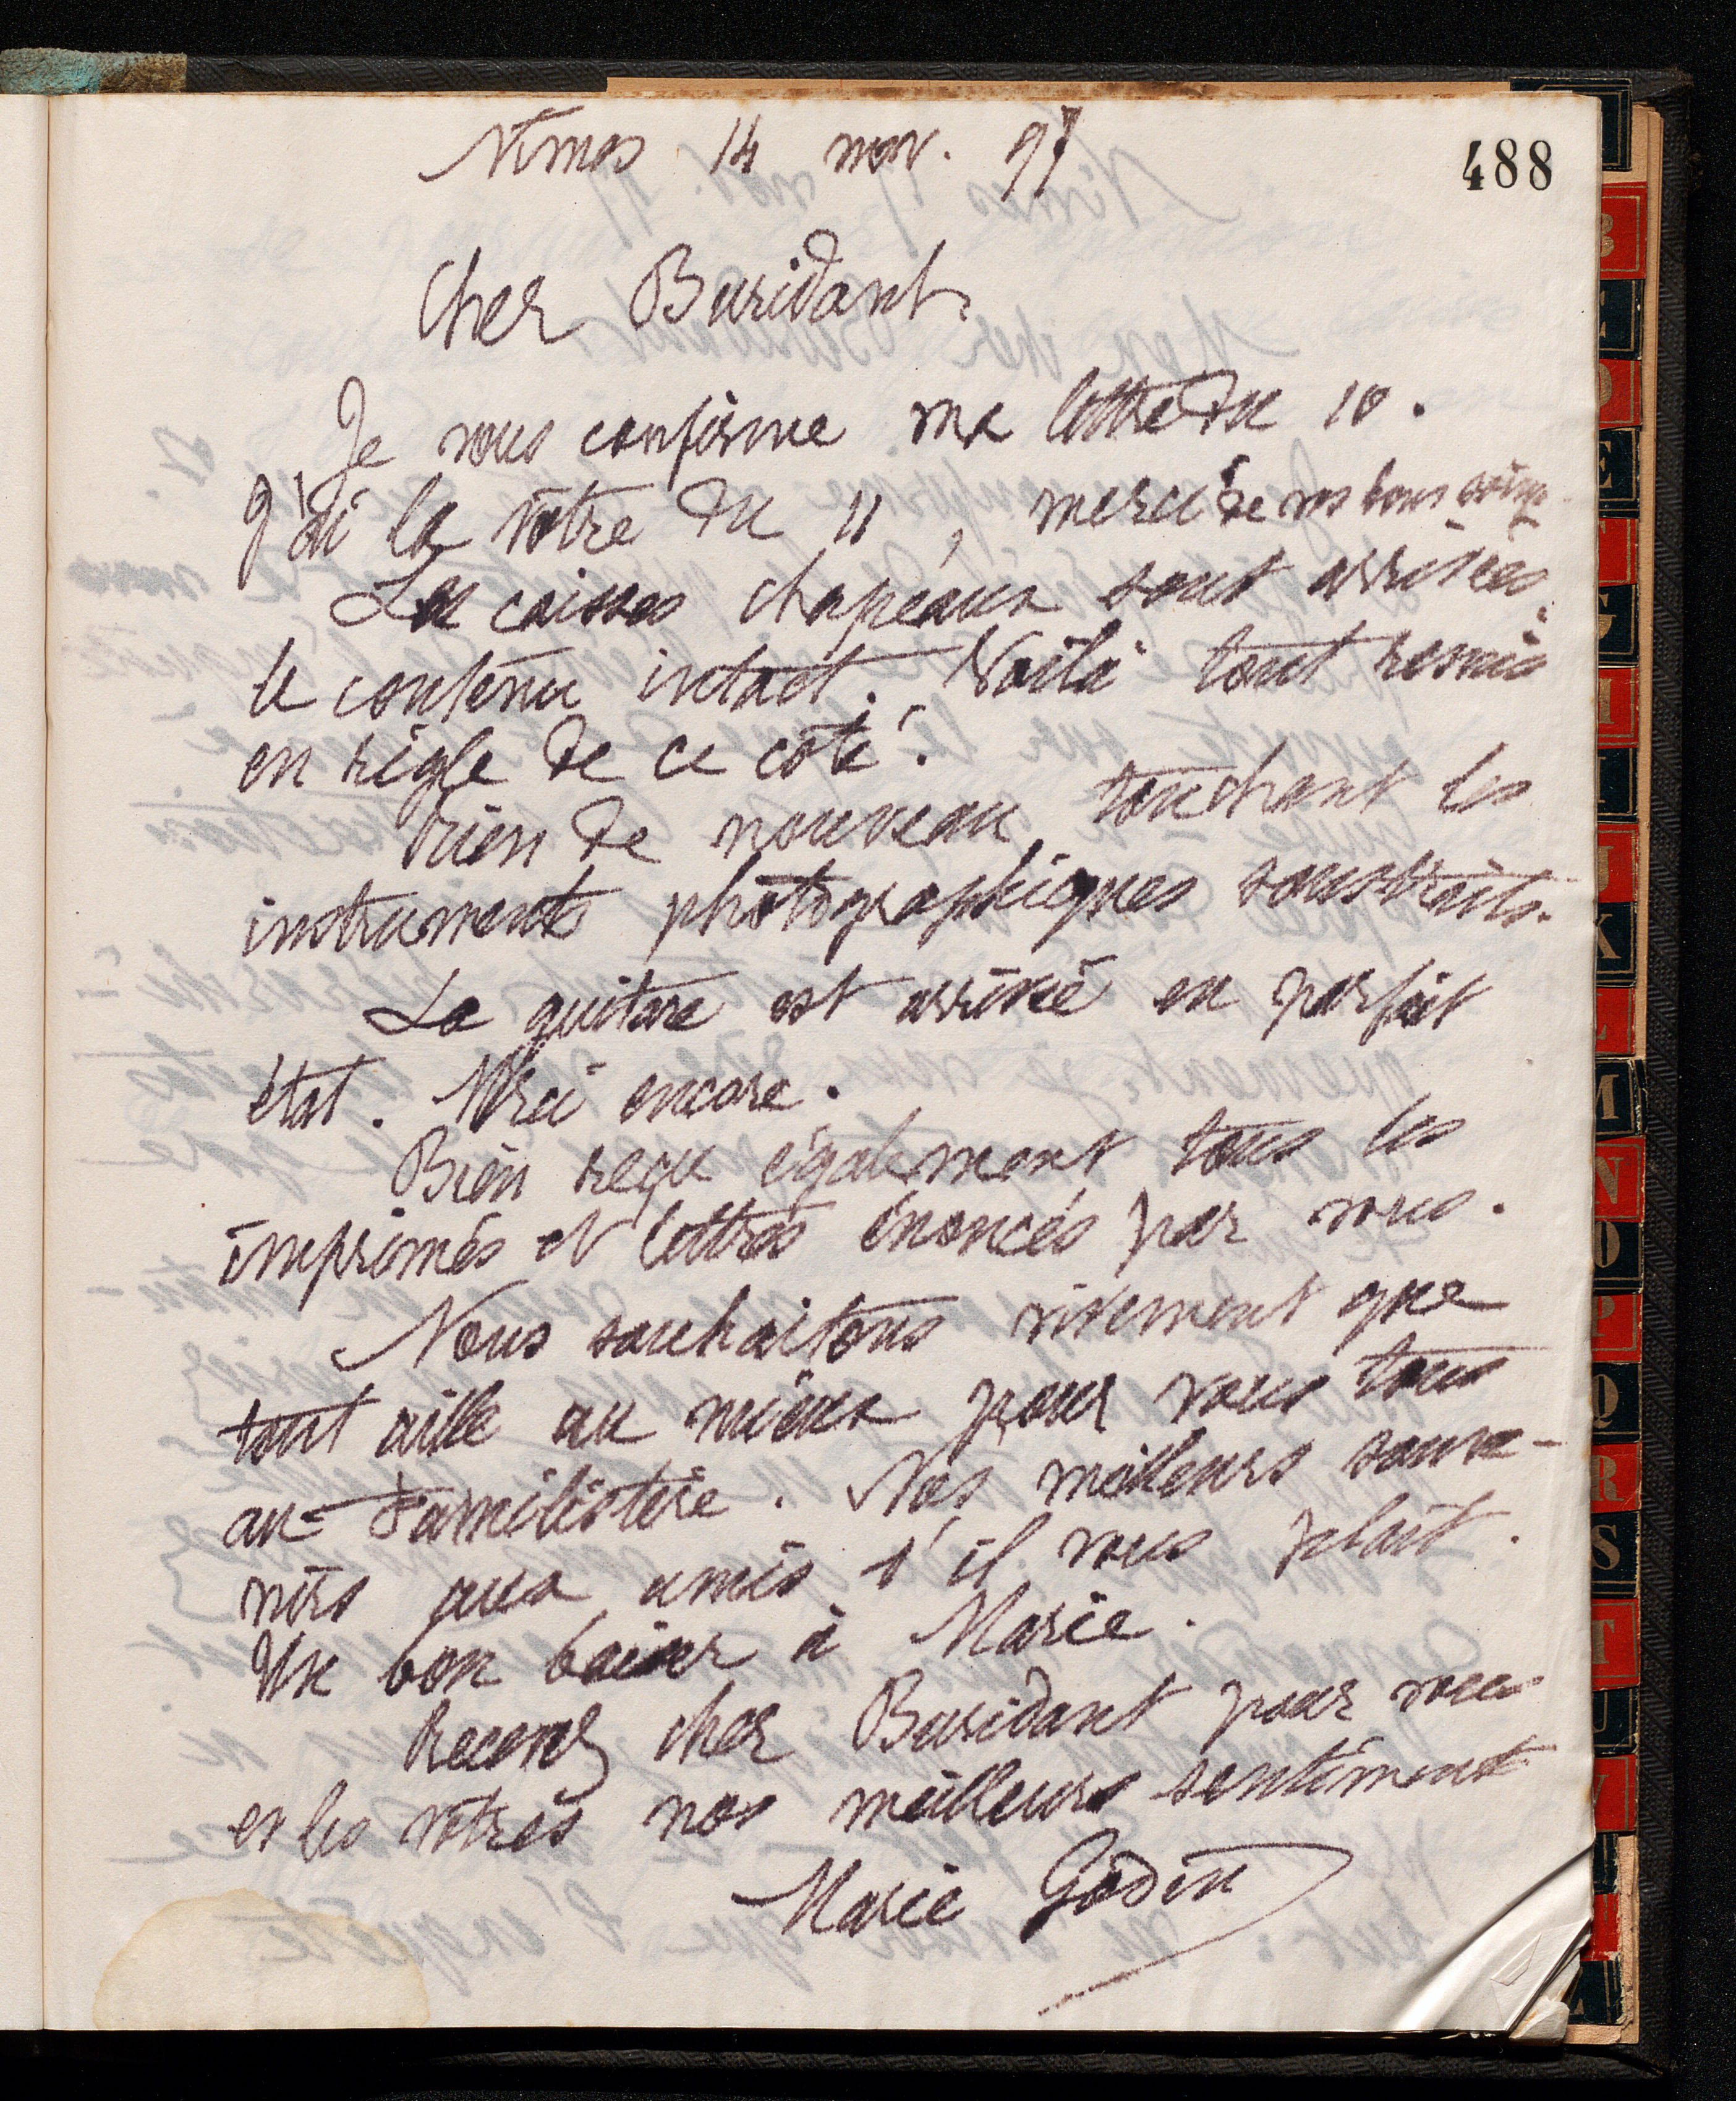 488
Nîmes 14 nov. 97
Cher Buridant,
Je vous confirme ma lettre du 10.
J'ai la vôtre du 11, merci de vos bons soins.
Les caisses chapeaux sont arrivées,
le contenu intact. Voilà tout remis
en règle de ce côté.
Rien de nouveau touchant les
instruments photographiques soustraits.
La guitare est arrivée en parfait
état. Merci encore.
Bien reçu également tous les
imprimés et lettres énoncés par vous.
Nous souhaitons vivement que
tout aille au mieux pour vous tous
au Familistère. Nos meilleurs souve-
nirs aux amis s'il vous plaît.
Un bon baiser à Marie.
Recevez cher Buridant pour vous
et les vôtres nos meilleurs sentiments
Marie Godin